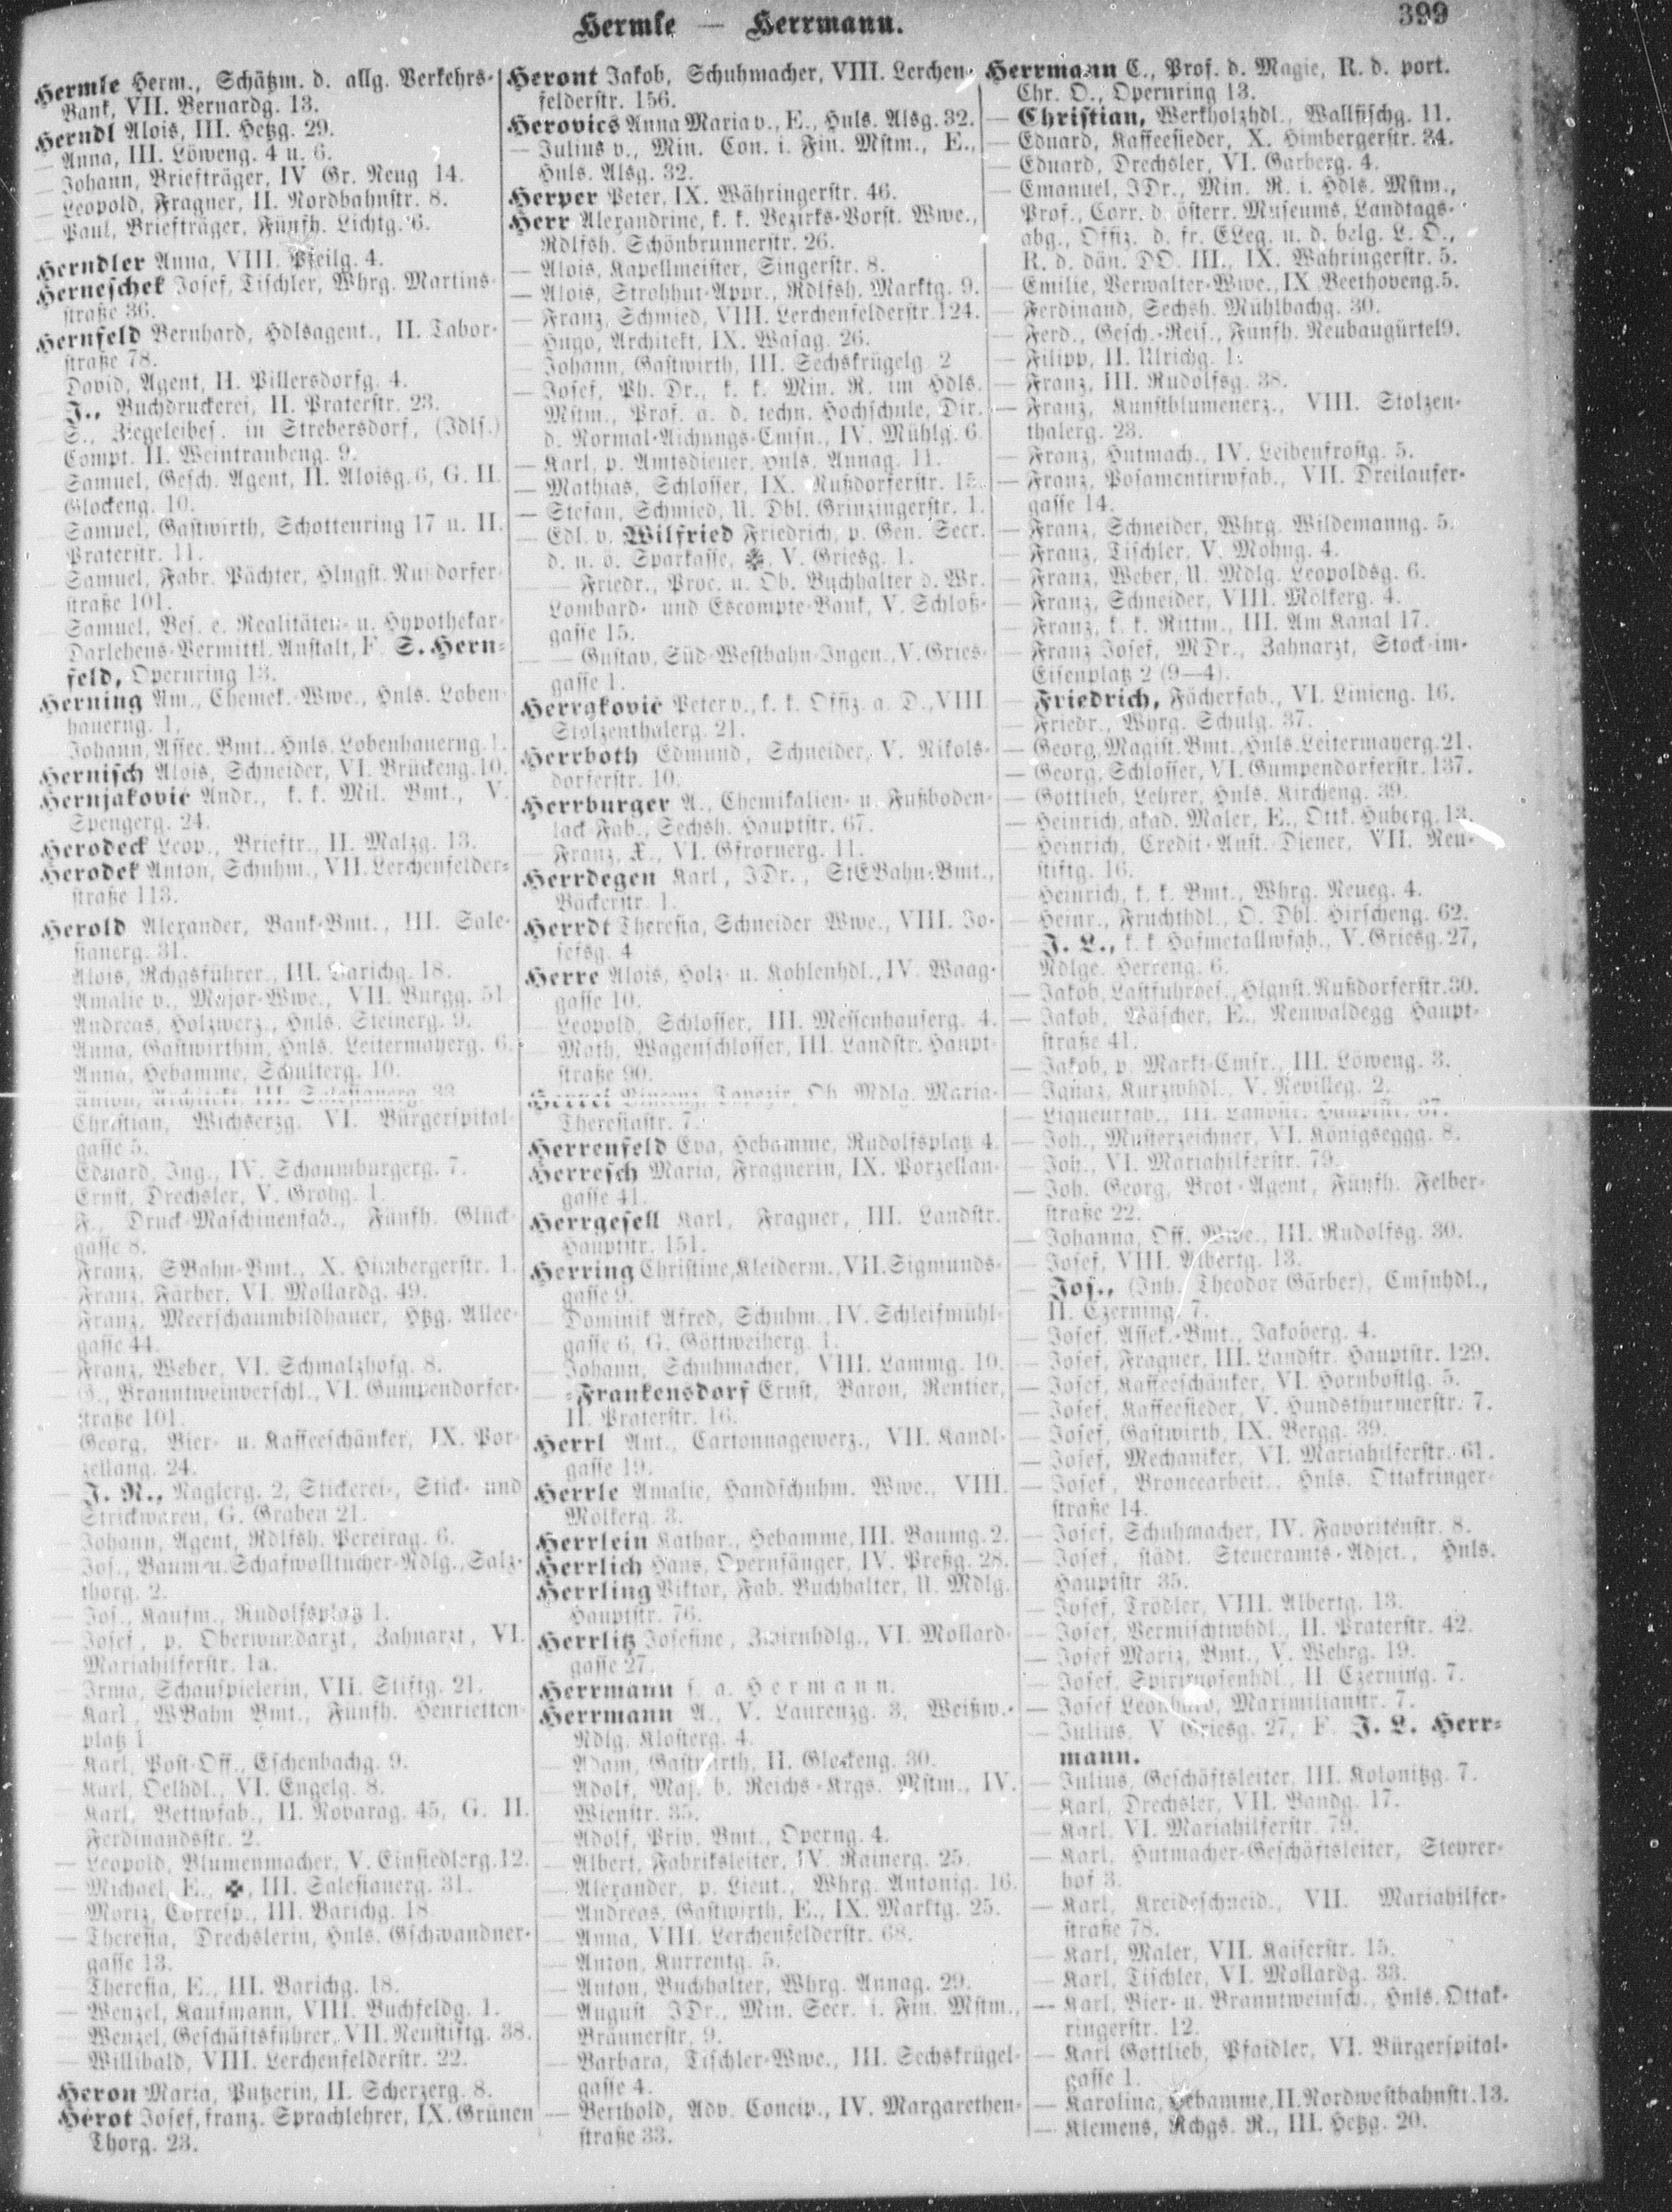 Hermle — Herrmann.
399
Hermle Herm., Schätzm. d. allg. Verkehrs-
Bank, VII. Bernardg. 13.
Herndl Alois, III. Hetzg. 29.
Anna, III. Löweng. 4 u. 6.
Johann, Briefträger, IV Gr. Neug 14.
Leopold, Fragner, II. Nordbahnstr. 8.
Paul, Briefträger, Fünfh. Lichtg. 6.
Herndler Anna, VIII. Pfeilg. 4.
Herneschek Josef, Tischler, Whrg. Martins-
straße 36.
Hernfeld Bernhard, Hdlsagent., II. Tabor-
straße 78.
David, Agent, II. Pillersdorfg. 4.
J., Buchdruckerei, II. Praterstr. 23.
S., Ziegeleibes. in Strebersdorf, (Jdls.)
Compt. II. Weintraubeng. 9.
Samuel, Gesch. Agent, II. Aloisg. 6, G. II.
Glockeng. 10.
Samuel, Gastwirth, Schottenring 17 u. II.
Praterstr. 11.
Samuel, Fabr. Pächter, Hlngst. Nußdorfer-
straße 101.
Samuel, Bes. e. Realitäten- u. Hypothekar-
Darlehens-Vermittl. Anstalt, F. S. Hern-
feld, Opernring 13.
Herning Am., Chemek.-Wwe., Hnls. Loben-
hauerng. 1.
Johann, Assec. Bmt., Hnls. Lobenhauerng. 1.
Hernisch Alois, Schneider, VI. Brückeng. 10.
Hernjaković Andr., k. k. Mil. Bmt., V.
Spengerg. 24.
Herodeck Leop., Brieftr., II. Malzg. 13.
Herodek Anton, Schuhm., VII. Lerchenfelder-
straße 113.
Herold Alexander, Bank-Bmt., III. Sale-
sianerg. 31.
Alois, Rchgsführer., III. Barichg. 18.
Amalie v., Major-Wwe., VII. Burgg. 51.
Andreas, Holzwerz., Hnls. Steinerg. 9.
Anna, Gastwirthin, Hnls. Leitermayerg. 6.
Anna, Hebamme, Schulterg. 10.
Anton, Architekt, III. Salesianerg. 33.
Christian, Wichserzg. VI. Bürgerspital-
gasse 5.
Eduard, Ing., IV. Schaumburgerg. 7.
Ernst, Drechsler, V. Grohg. 1.
F., Druck-Maschinenfab., Fünfh. Glück-
gasse 8.
Franz, SBahn-Bmt., X. Himbergerstr. 1.
Franz, Färber, VI. Mollardg. 49.
Franz, Meerschaumbildhauer, Htzg. Allee-
gasse 44.
Franz, Weber, VI. Schmalzhofg. 8.
G., Branntweinverschl., VI. Gumpendorfer-
straße 101.
Georg, Bier- u. Kaffeeschänker, IX. Por-
zellang. 24.
J. N., Naglerg. 2, Stickerei-, Stick- und
Strickwaren, G. Graben 21.
Johann, Agent, Rdlfsh. Pereirag. 6.
Jos., Baum- u. Schafwolltücher-Ndlg., Salz-
thorg. 2.
Jos., Kaufm., Rudolfsplatz 1.
Josef, p. Oberwundarzt, Zahnarzt, VI.
Mariahilferstr. 1a.
Irma, Schauspielerin, VII. Stiftg. 21.
Karl, WBahn Bmt., Fünfh. Henrietten-
platz 1
Karl, Post-Off., Eschenbachg. 9.
Karl, Oelhdl., VI. Engelg. 8.
Karl, Bettwfab., II. Novarag. 45, G. II.
Ferdinandsstr. 2.
— Leopold, Blumenmacher, V. Einsiedlerg. 12.
— Michael, E., ✠, III. Salesianerg. 31.
— Moriz, Corresp., III. Barichg. 18
— Theresia, Drechslerin, Hnls. Gschwandner-
gasse 13.
Theresia, E., III. Barichg. 18.
— Wenzel, Kaufmann, VIII. Buchfeldg. 1.
— Wenzel, Geschäftsführer, VII. Neustiftg. 38.
— Willibald, VIII. Lerchenfelderstr. 22.
Heron Maria, Putzerin, II. Scherzerg. 8.
Hérot Josef, franz. Sprachlehrer, IX. Grünen
Thorg. 23.
Heront Jakob, Schuhmacher, VIII. Lerchen-
felderstr. 156.
Herovics Anna Maria v., E., Hnls. Alsg. 32.
— Julius v., Min. Con. i. Fin. Mstm., E.,
Hnls. Alsg. 32.
Herper Peter, IX. Währingerstr. 46.
Herr Alexandrine, k. k. Bezirks-Vorst. Wwe.,
Rdlfsh. Schönbrunnerstr. 26.
— Alois, Kapellmeister, Singerstr. 8.
— Alois, Strohhut-Appr., Rdlfsh. Marktg. 9.
— Franz, Schmied, VIII. Lerchenfelderstr. 124.
— Hugo, Architekt, IX. Wasag. 26.
— Johann, Gastwirth, III. Sechskrügelg. 2
— Josef, Ph. Dr., k. k. Min. R. im Hdls.
Mstm., Prof. a. d. techn. Hochschule, Dir.
d. Normal-Aichungs-Cmsn., IV. Mühlg. 6.
— Karl, p. Amtsdiener, Hnls. Annag. 11.
— Mathias, Schlosser, IX. Nußdorferstr. 15.
— Stefan, Schmied, U. Dbl. Grinzingerstr. 1.
— Edl. v. Wilfried Friedrich, p. Gen. Secr.
d. n. ö. Sparkasse, ✠, V. Griesg. 1.
— — Friedr., Proc. u. Ob. Buchhalter d. Wr.
Lombard- und Escompte-Bank, V. Schloß-
gasse 15.
— — Gustav, Süd-Westbahn-Ingen., V. Gries-
gasse 1.
Herrgković Peter v., k. k. Offiz. a. D., VIII
Stolzenthalerg. 21.
Herrboth Edmund, Schneider, V. Nikols-
dorferstr. 10.
Herrburger A., Chemikalien- u. Fußboden-
lack-Fab., Sechsh. Hauptstr. 67.
— Franz, X., VI. Gfrornerg. 11.
Herrdegen Karl, JDr., StEBahn-Bmt.,
Bäckerstr. 1.
Herrdt Theresia, Schneider Wwe., VIII. Jo-
sefsg. 4
Herre Alois, Holz- u. Kohlenhdl., IV. Waag-
gasse 10.
Leopold, Schlosser, III. Messenhauserg. 4.
Math., Wagenschlosser, III. Landstr. Haupt-
straße 90.
Vincenz, Tapezir, Ob. Mdlg. Maria-
Theresiastr. 7.
Herrenfeld Eva, Hebamme, Rudolfsplatz 4.
Herresch Maria, Fragnerin, IX. Porzellan-
gasse 41.
Herrgesell Karl, Fragner, III. Landstr.
Hauptstr. 151.
Herring Christine, Kleiderm., VII. Sigmunds-
gasse 9.
Dominik Afred, Schuhm., IV. Schleifmühl-
gasse 6, G. Göttweiherg. 1.
Johann, Schuhmacher, VIII. Lammg. 10.
— -Frankensdorf Ernst, Baron, Rentier,
II. Praterstr. 16.
Herrl Ant., Cartonnagewerz., VII. Kandl-
gasse 19.
Herrle Amalie, Handschuhm. Wwe., VIII.
Mölkerg. 3.
Herrlein Kathar., Hebamme, III. Baumg. 2.
Herrlich Hans, Opernsänger, IV. Preßg. 28.
Herrling Viktor, Fab. Buchhalter, U. Mdlg.
Hauptstr. 76.
Herrlitz Josefine, Zwirnhdlg., VI. Mollard-
gasse 27.
Herrmann s. a. Hermann.
Herrmann A., V. Laurenzg. 3, Weißw.-
Ndlg. Klosterg. 4.
Adam, Gastwirth, II. Glockeng. 30.
Adolf, Maj. b. Reichs-Krgs. Mstm., IV.
Wienstr. 35.
— Adolf, Priv. Bmt., Operng. 4.
— Albert, Fabriksleiter, IV. Rainerg. 25.
— Alexander, p. Lieut., Whrg. Antonig. 16.
— Andreas, Gastwirth, E., IX. Marktg. 25.
— Anna, VIII. Lerchenfelderstr. 68.
— Anton, Kurrentg. 5.
— Anton, Buchhalter, Whrg. Annag. 29.
— August JDr., Min. Secr. i. Fin. Mstm.,
Bräunerstr. 9.
— Barbara, Tischler-Wwe., III. Sechskrügel-
gasse 4.
— Berthold, Adv. Concip., IV. Margarethen-
straße 33.
Herrmann C., Prof. d. Magie, R. d. port.
Chr. O., Opernring 13.
— Christian, Werkholzhdl., Wallfischg. 11.
— Eduard, Kaffeesieder, X. Himbergerstr. 34.
— Eduard, Drechsler, VI. Garberg. 4.
— Emanuel, JDr., Min. R. i. Hdls. Mstm.,
Prof., Corr. d. österr. Museums, Landtags-
abg., Offiz. d. fr. ELeg. u. d. belg. L. O.,
R. d. dän. DO. III., IX. Währingerstr. 5.
— Emilie, Verwalter-Wwe., IX Beethoveng. 5.
— Ferdinand, Sechsh. Mühlbachg. 30.
— Ferd., Gesch.-Reis., Fünfh. Neubaugürtel 9.
— Filipp, II. Ulrichg. 1.
— Franz, III. Rudolfsg. 38.
— Franz, Kunstblumenerz., VIII. Stolzen-
thalerg. 23.
— Franz, Hutmach., IV. Leibenfrostg. 5.
— Franz, Posamentirwfab., VII. Dreilaufer-
gasse 14.
— Franz, Schneider, Whrg. Wildemanng. 5.
— Franz, Tischler, V. Mohng. 4.
— Franz, Weber, U. Mdlg. Leopoldsg. 6.
— Franz, Schneider, VIII. Mölkerg. 4.
— Franz, k. k. Rittm., III. Am Kanal 17.
— Franz Josef, MDr., Zahnarzt, Stock-im-
Eisenplatz 2 (9—4).
— Friedrich, Fächerfab., VI. Linieng. 16.
— Friedr., Whrg. Schulg. 37.
— Georg, Magist. Bmt., Hnls. Leitermayerg. 21.
— Georg, Schlosser, VI. Gumpendorferstr. 137.
— Gottlieb, Lehrer, Hnls. Kircheng. 39.
— Heinrich, akad. Maler, E., Ottk. Huberg. 13.
— Heinrich, Credit-Anst. Diener, VII. Neu-
stiftg. 16.
Heinrich, k. k. Bmt., Whrg. Neueg. 4.
— Heinr., Fruchthdl., O. Dbl. Hirscheng. 62.
— J. L., k. k. Hofmetallwfab., V. Griesg. 27,
Ndlge. Herreng. 6.
— Jakob, Lastfuhrbes., Hlgnst. Nußdorferstr. 30.
— Jakob, Wäscher, E., Neuwaldegg Haupt-
straße 41.
— Jakob, p. Markt-Cmsr., III. Löweng. 3.
— Ignaz, Kurzwhdl., V. Nevilleg. 2.
— Liqueurfab., III. Landstr. Hauptstr. 67.
— Joh., Musterzeichner, VI. Königseggg. 8.
— Joh., VI. Mariahilferstr. 79.
— Joh. Georg, Brot-Agent, Fünfh. Felber-
straße 22.
— Johanna, Off. Wwe., III. Rudolfsg. 30.
— Josef, VIII. Albertg. 13.
— Jos., (Inh. Theodor Gärber), Cmsnhdl.,
II. Czerning. 7.
— Josef, Assek.-Bmt., Jakoberg. 4.
— Josef, Fragner, III. Landstr. Hauptstr. 129.
— Josef, Kaffeeschänker, VI. Hornbostlg. 5.
— Josef, Kaffeesieder, V. Hundsthurmerstr. 7.
— Josef, Gastwirth, IX. Bergg. 39.
— Josef, Mechaniker, VI. Mariahilferstr. 61.
— Josef, Broncearbeit., Hnls. Ottakringer-
straße 14.
— Josef, Schuhmacher, IV. Favoritenstr. 8.
— Josef, städt. Steueramts-Adjct., Hnls.
Hauptstr 35.
— Josef, Trödler, VIII. Albertg. 13.
— Josef, Vermischtwhdl., II. Praterstr. 42.
— Josef Moriz, Bmt., V. Wehrg. 19.
— Josef, Spirituosenhdl., II Czerning. 7.
— Josef Leonhard, Maximilianstr. 7.
— Julius, V Griesg. 27, F. J. L. Herr-
mann.
— Julius, Geschäftsleiter, III. Kolonitzg. 7.
— Karl, Drechsler, VII. Bandg. 17.
— Karl, VI. Mariahilferstr. 79.
— Karl, Hutmacher-Geschäftsleiter, Steyrer-
hof 3.
— Karl, Kreideschneid., VII. Mariahilfer-
straße 78.
— Karl, Maler, VII. Kaiserstr. 15.
— Karl, Tischler, VI. Mollardg. 33.
— Karl, Bier- u. Branntweinsch., Hnls. Ottak-
ringerstr. 12.
— Karl Gottlieb, Pfaidler, VI. Bürgerspital-
gasse 1.
— Karolina, Hebamme, II. Nordwestbahnstr. 13.
— Klemens, Rchgs. R., III. Hetzg. 20.